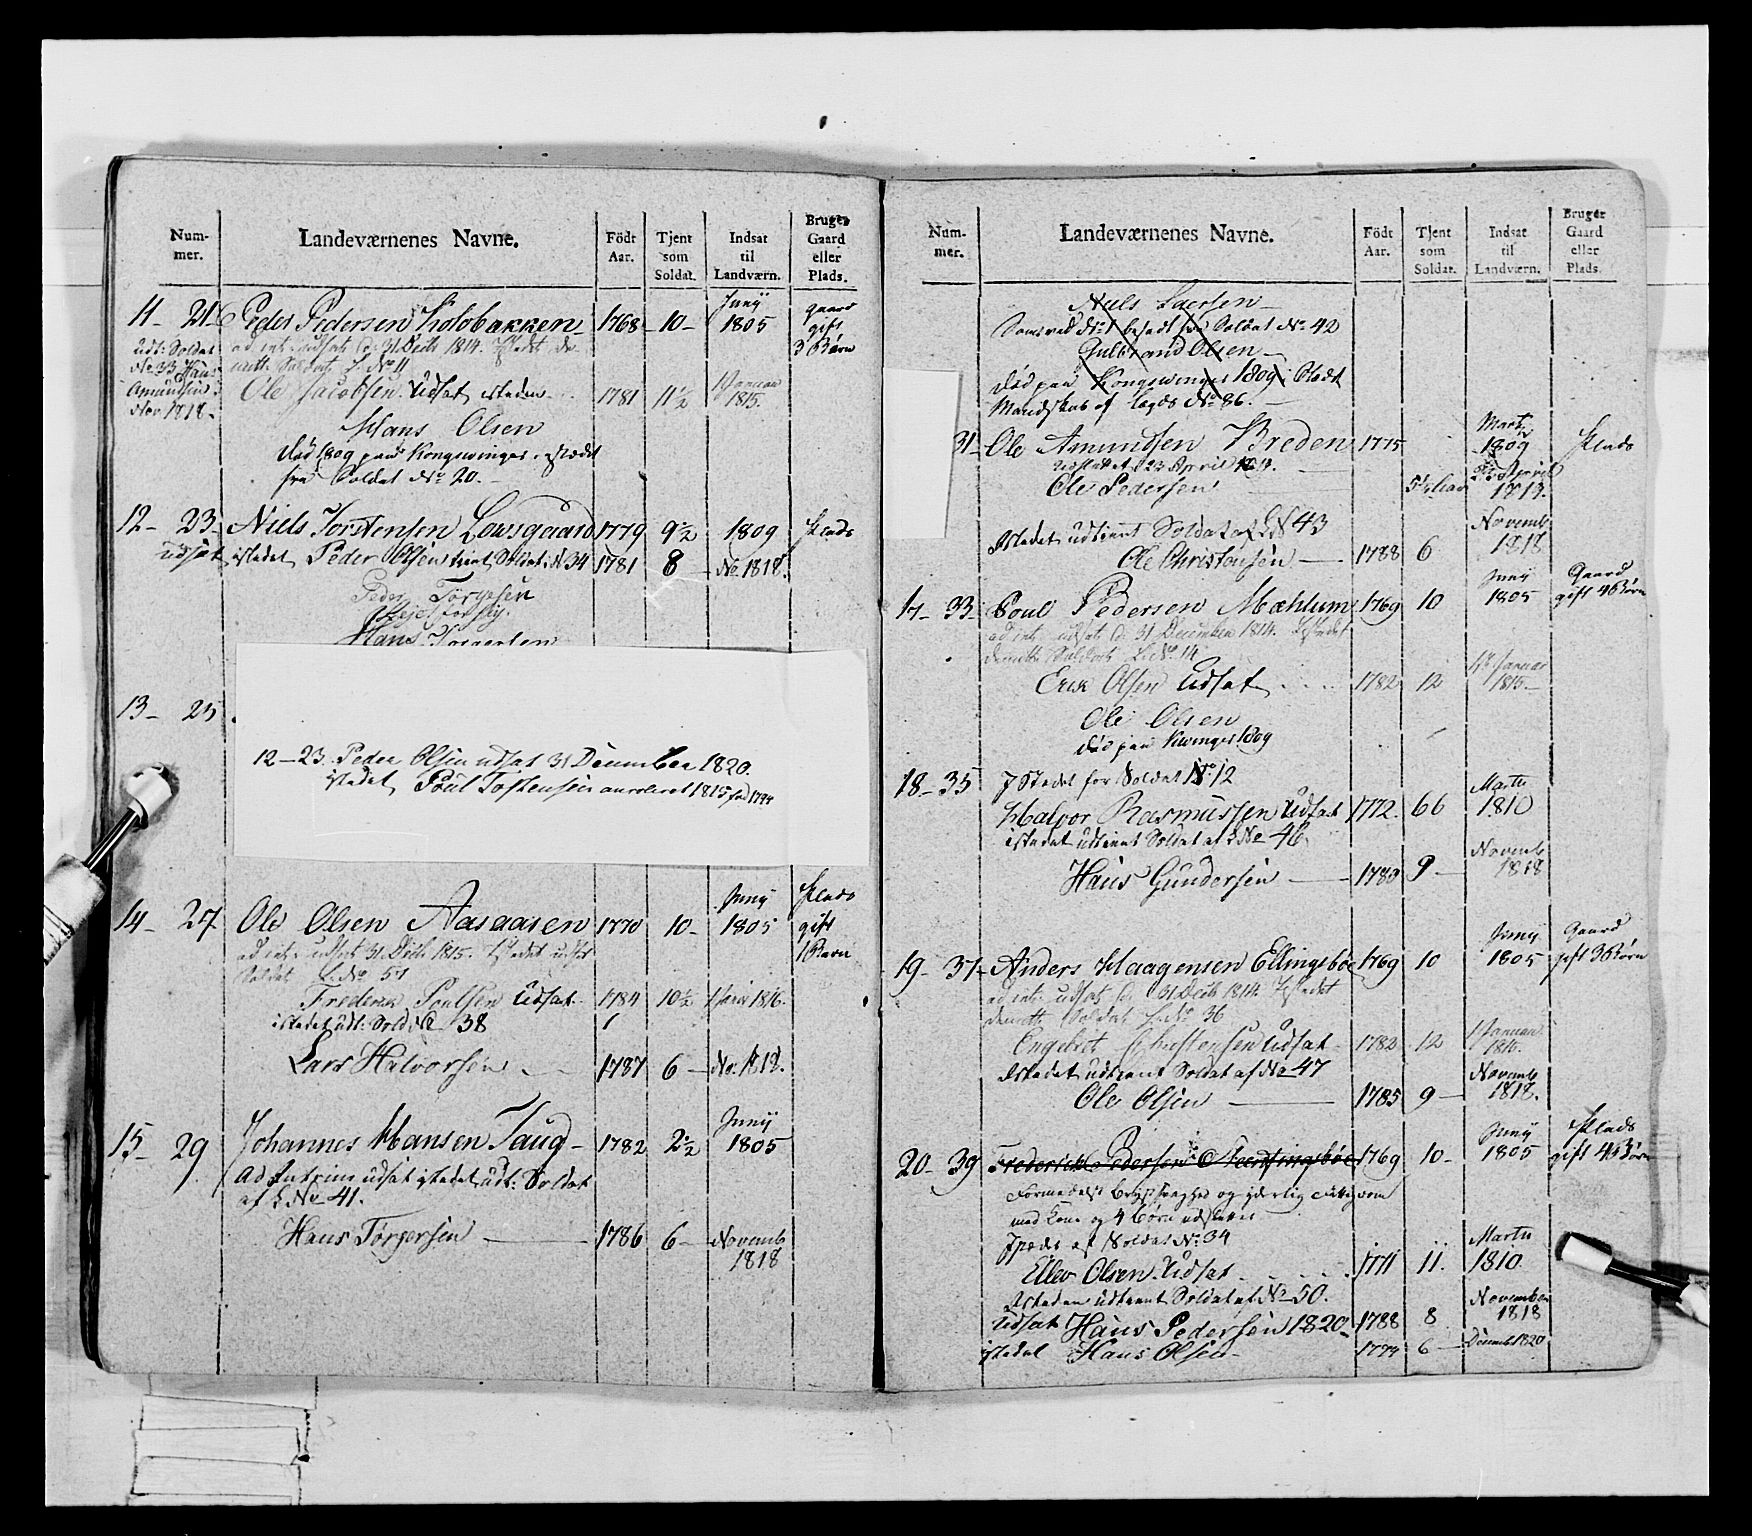 Num-
mer.
Landeværnenes Navne.
Födt
Aar.
Tjent
som
Soldat.
Indsat
til
Landværn.
Bruger
Gaard
eller
Plads.
11- 21- Peder Pedersen Kolobakken 1768 10- Junij 1805 gaard gift 3 Børn
Udt: Soldat No 33 Hans Amundsen Nov 1818.
ad int: udsat d: 31 Decb 1814. Istedet
Soldat L. No 11
Ole Jacobsen Udsat isteden 1781 11½ 1 Januar 1815.
Hans Olsen
død 1809 paa Kongswinger. istedet
fra Soldat No 20.
12- 23- Niels Torstensen Lowsgaard 1779 9½ 1809 Plads
udsat istedet Peder Olsen tient Soldat: N 34 1781 8 No: 1818.
Peder Torgesen
Hans Torgersen
13- 25
12-23 Peder Olsen udsat 31 December 1820.
istedet Poul Tostensen anroleret 1815 fød 1794
14- 27 Ole Olsen Aasaasen 1770 10- Junij 1805 Plads gift 1 Barn
ad int: udsat 31 Decb 1815. Istedet udtient
Soldat L: No 57
Frederik Poulsen Udsat 1784 10½ 1816.
istedet udt: Sold: No 38
Lars Halvorsen 1787 6 No: 1818.
15- 29 Johannes Hansen Taug- 1782 2½ Junij 1805
Ad Intrim udsat istedet udt: Soldat
af L No 41.
Hans Törgersen 1786 6- Novemb 1818
Num-
mer.
Landeværnenes Navne.
Födt
Aar.
Tjent
som
Soldat.
Indsat
til
Landværn.
Bruger
Gaard
eller
Plads.
Niels Larsen
besadt fra Soldat No 42
Gulbrand Olsen
død paa Kongswinger 1809 i Stedt
Mandskab af Lægds No 86.
31- Ole Amundsen Breden 1775 Marti 1809 Plads
udskottet 23 April
Ole Pedersen 5½ Aar April 1813.
Istedet udtient Soldat af L N 43
Ole Christensen 1788 6 Novemb 1818
17- 33- Poul Pedersen Mæhlum 1769 10 Junij 1805 Gaard gift 4 Børn
ad int: udsat d: 31 December 1814. Istedet
Soldat L: No. 14
Erik Olsen Udsat 1782 12 1 Januar 1815-
Ole Olsen
død paa Kwinger 1809
18- 35 I Stedet for Soldat No 12
Halvor Rasmussen Udsat 1772. 66 Marti 1810
istedet udtient Soldat af L No 46.
Hans Gundersen 1783 9- Novemb 1818
19- 37- Anders Haagensen Ellingsböe 1769 10 Junij 1805 Gaard gift 3 Børn
ad int: udsat d: 31 Decb 1814. Istedet
Soldat L: No 36
Engebret Christensen Udsat 1782 12 1 Januar 1815.
Istedet udtient Soldat af No 47
Ole Olsen 1785 9- Novemb 1818.
20- 39 Frederick Pedersen 1769 10- Junij 1805 Plads gift 4 Børn
Formedelst Brystsvaghed og yderlig Fattigdom
med Kone og 4 Børn udskottet
Istedet af Soldat No 34
Ellev Olsen Udsat 1771 11. Martii 1810
Isteden udtient Soldat af No 50.
Udsat Hans Pedersen 1820 1788 8 November 1818
istedet Hans Olsen 1794 6- Decemb 1820